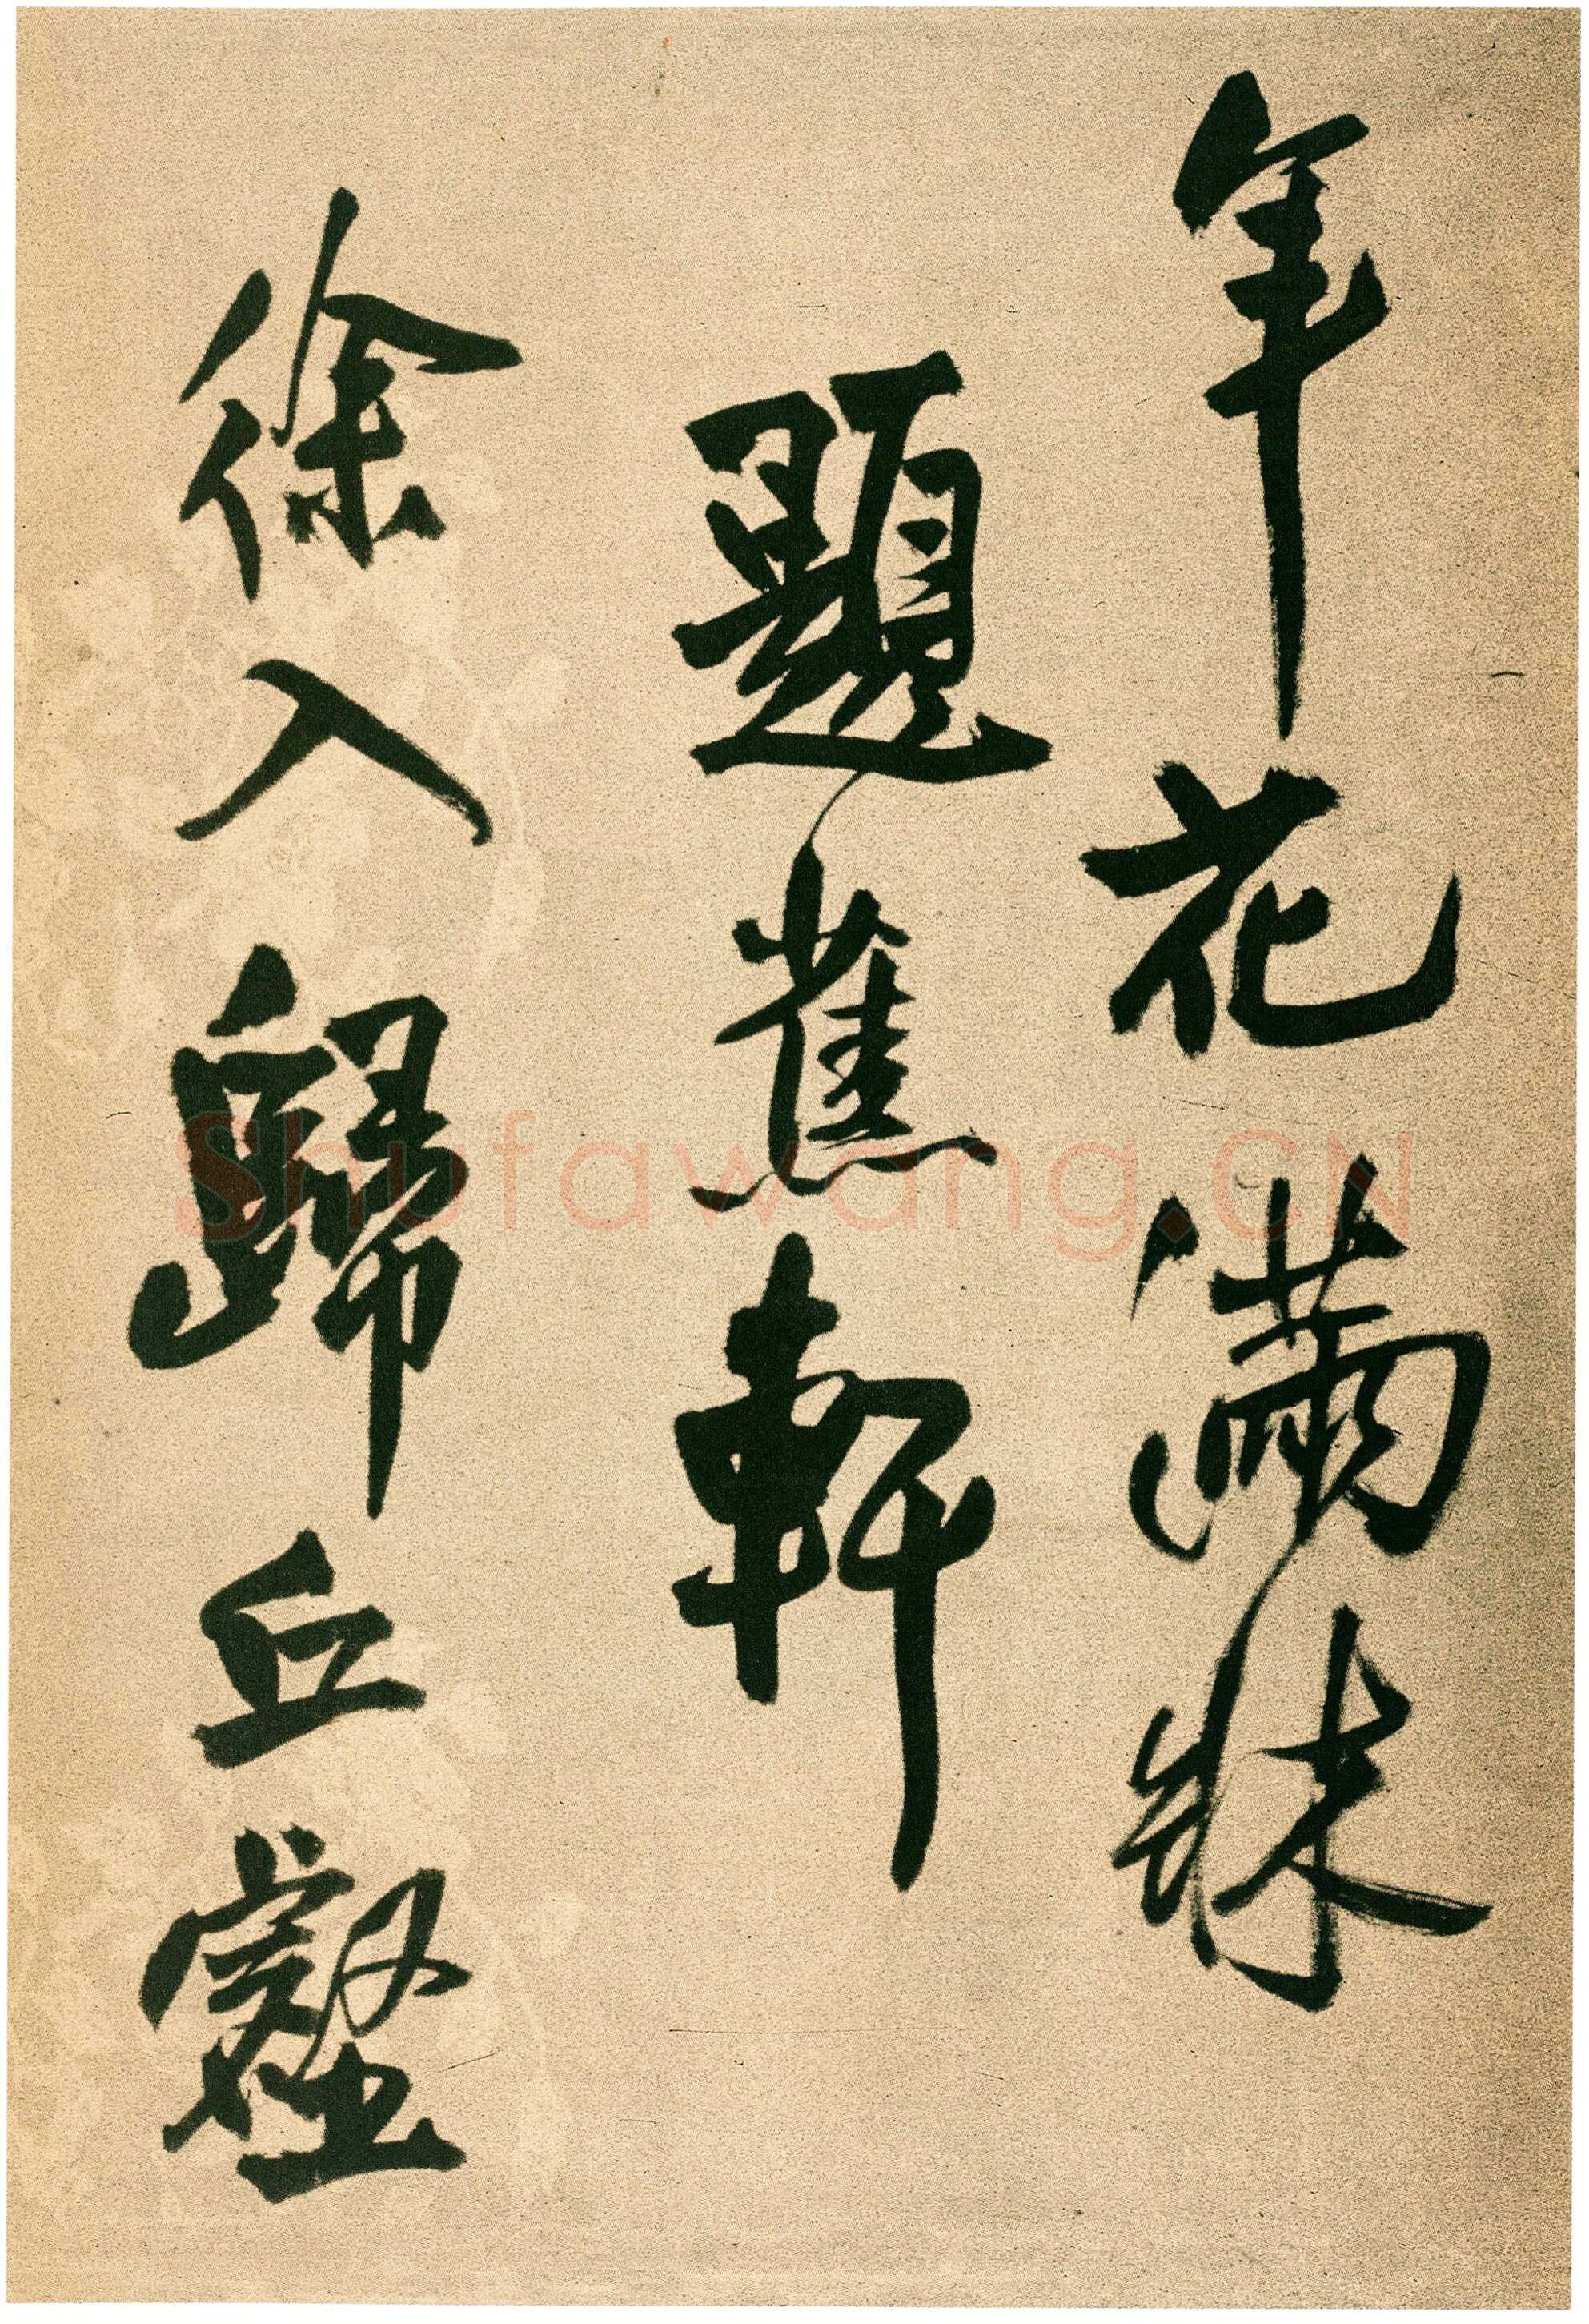 年花滿
題蕉軒
徐入歸丘壑
Shufawang.CN